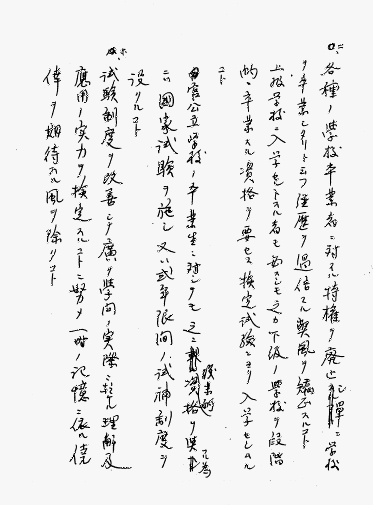 各種ノ学校卒業者ニ対スル特権ヲ廃止シ単ニ学校
ヲ卒業シタリト云フ経歴ヲ過信スル弊風ヲ矯正スルコト
上級学校ニ入学セントスル者モ必スシモ之カ下級ノ学校ノ段階
的ノ卒業スル資格ヲ要セス検定試験ニヨリ入学セシムル
コト
官公立学校ノ卒業生ニ対シテモ之ニ職業的資格ヲ与フル為
ニハ国家試験ヲ施シ又ハ式年限間ノ試補制度ヲ
設クルコト
試験制度ヲ改善シテ広ク学問ノ実際ニ対スル理解及
応用ノ実力ヲ検定スルコトニ努メ一時ノ記憶ニ依ル僥
倖ヲ期待スル風ヲ除クコト